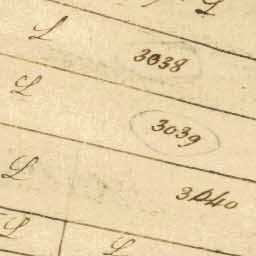 L
L 3038
L 3039
L 3040
L
L